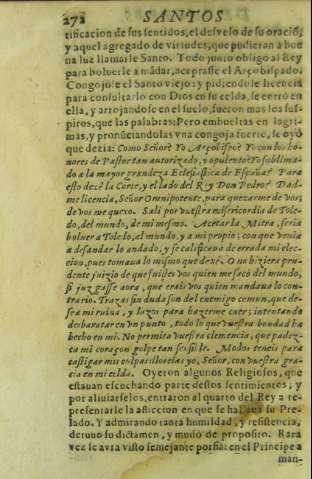 272 SANTOS
tificacion de sus sentidos, el desvelo de su oració;
y aquel agregado de virtudes, que pudieran a bue
na luz llamarle Santo. Todo junto obligo al Rey
para boluerle a mãdar, aceptasse el Arçobispado.
Congojose el Santo viejo: y pidiendole licencia
para consultarlo con Dios en su celda, se entrò en
ella, y arrojandose en el suelo, fueron mas los sus-
piros, que las palabras; Pero embueltas en lagri-
mas, y pronũciandolas vna congoja fuerte, se oyò
que dezia: Como Señor? Yo Arçobispo? Yo con los ho-
nores de Pastor tan autorizado, y opulento? Yo sublima-
do a la mayor grandeza Eclesiastica de España? Para
esto dexè la Corte, y el lado del Rey Don Pedro? Dad-
me licencia, Señor Omnipotente, para quexarme de vos;
de vos me quexo. Sali por vuestra misericordia de Tole-
do, del mundo, de mi mesmo. Acetar la Mitra, seria
boluer a Toledo, al mundo, y a mi proprio: con que venia
a desandar lo andado, y se calificaua de errada mi elec-
cion, pues tomaua lo mismo que dexè. O no hiziera pru-
dente juizio de que fuistes vos quien me sacò del mundo,
si juzgasse aora, que erais vos quien mandaua lo con-
trario. Trazas sin duda son del enemigo comun, que de-
sea mi ruina, y lazos para hazerme caer; intentando
desbaratar en vn punto, todo lo que vuestra bondad ha
hecho en mi. No permita vuestra clemencia, que padez-
ca mi coraçon golpe tan sensible. Modos teneis para
castigar mis culpas: lloraelas yo, Señor, con vuestra gra-
cia en mi celda. Oyeron algunos Religiosos, que
estauan escuchando parte destos sentimientos; y
por aliuiarselos, entraron al quarto del Rey a re-
presentarle la afliccion en que se hallaua su Pre-
lado. Y admirando tanta humildad, y resistencia,
detuuo su dictamen, y mudò de proposito. Rara
vez se avra visto semejante porfia: en el Principe a
man-